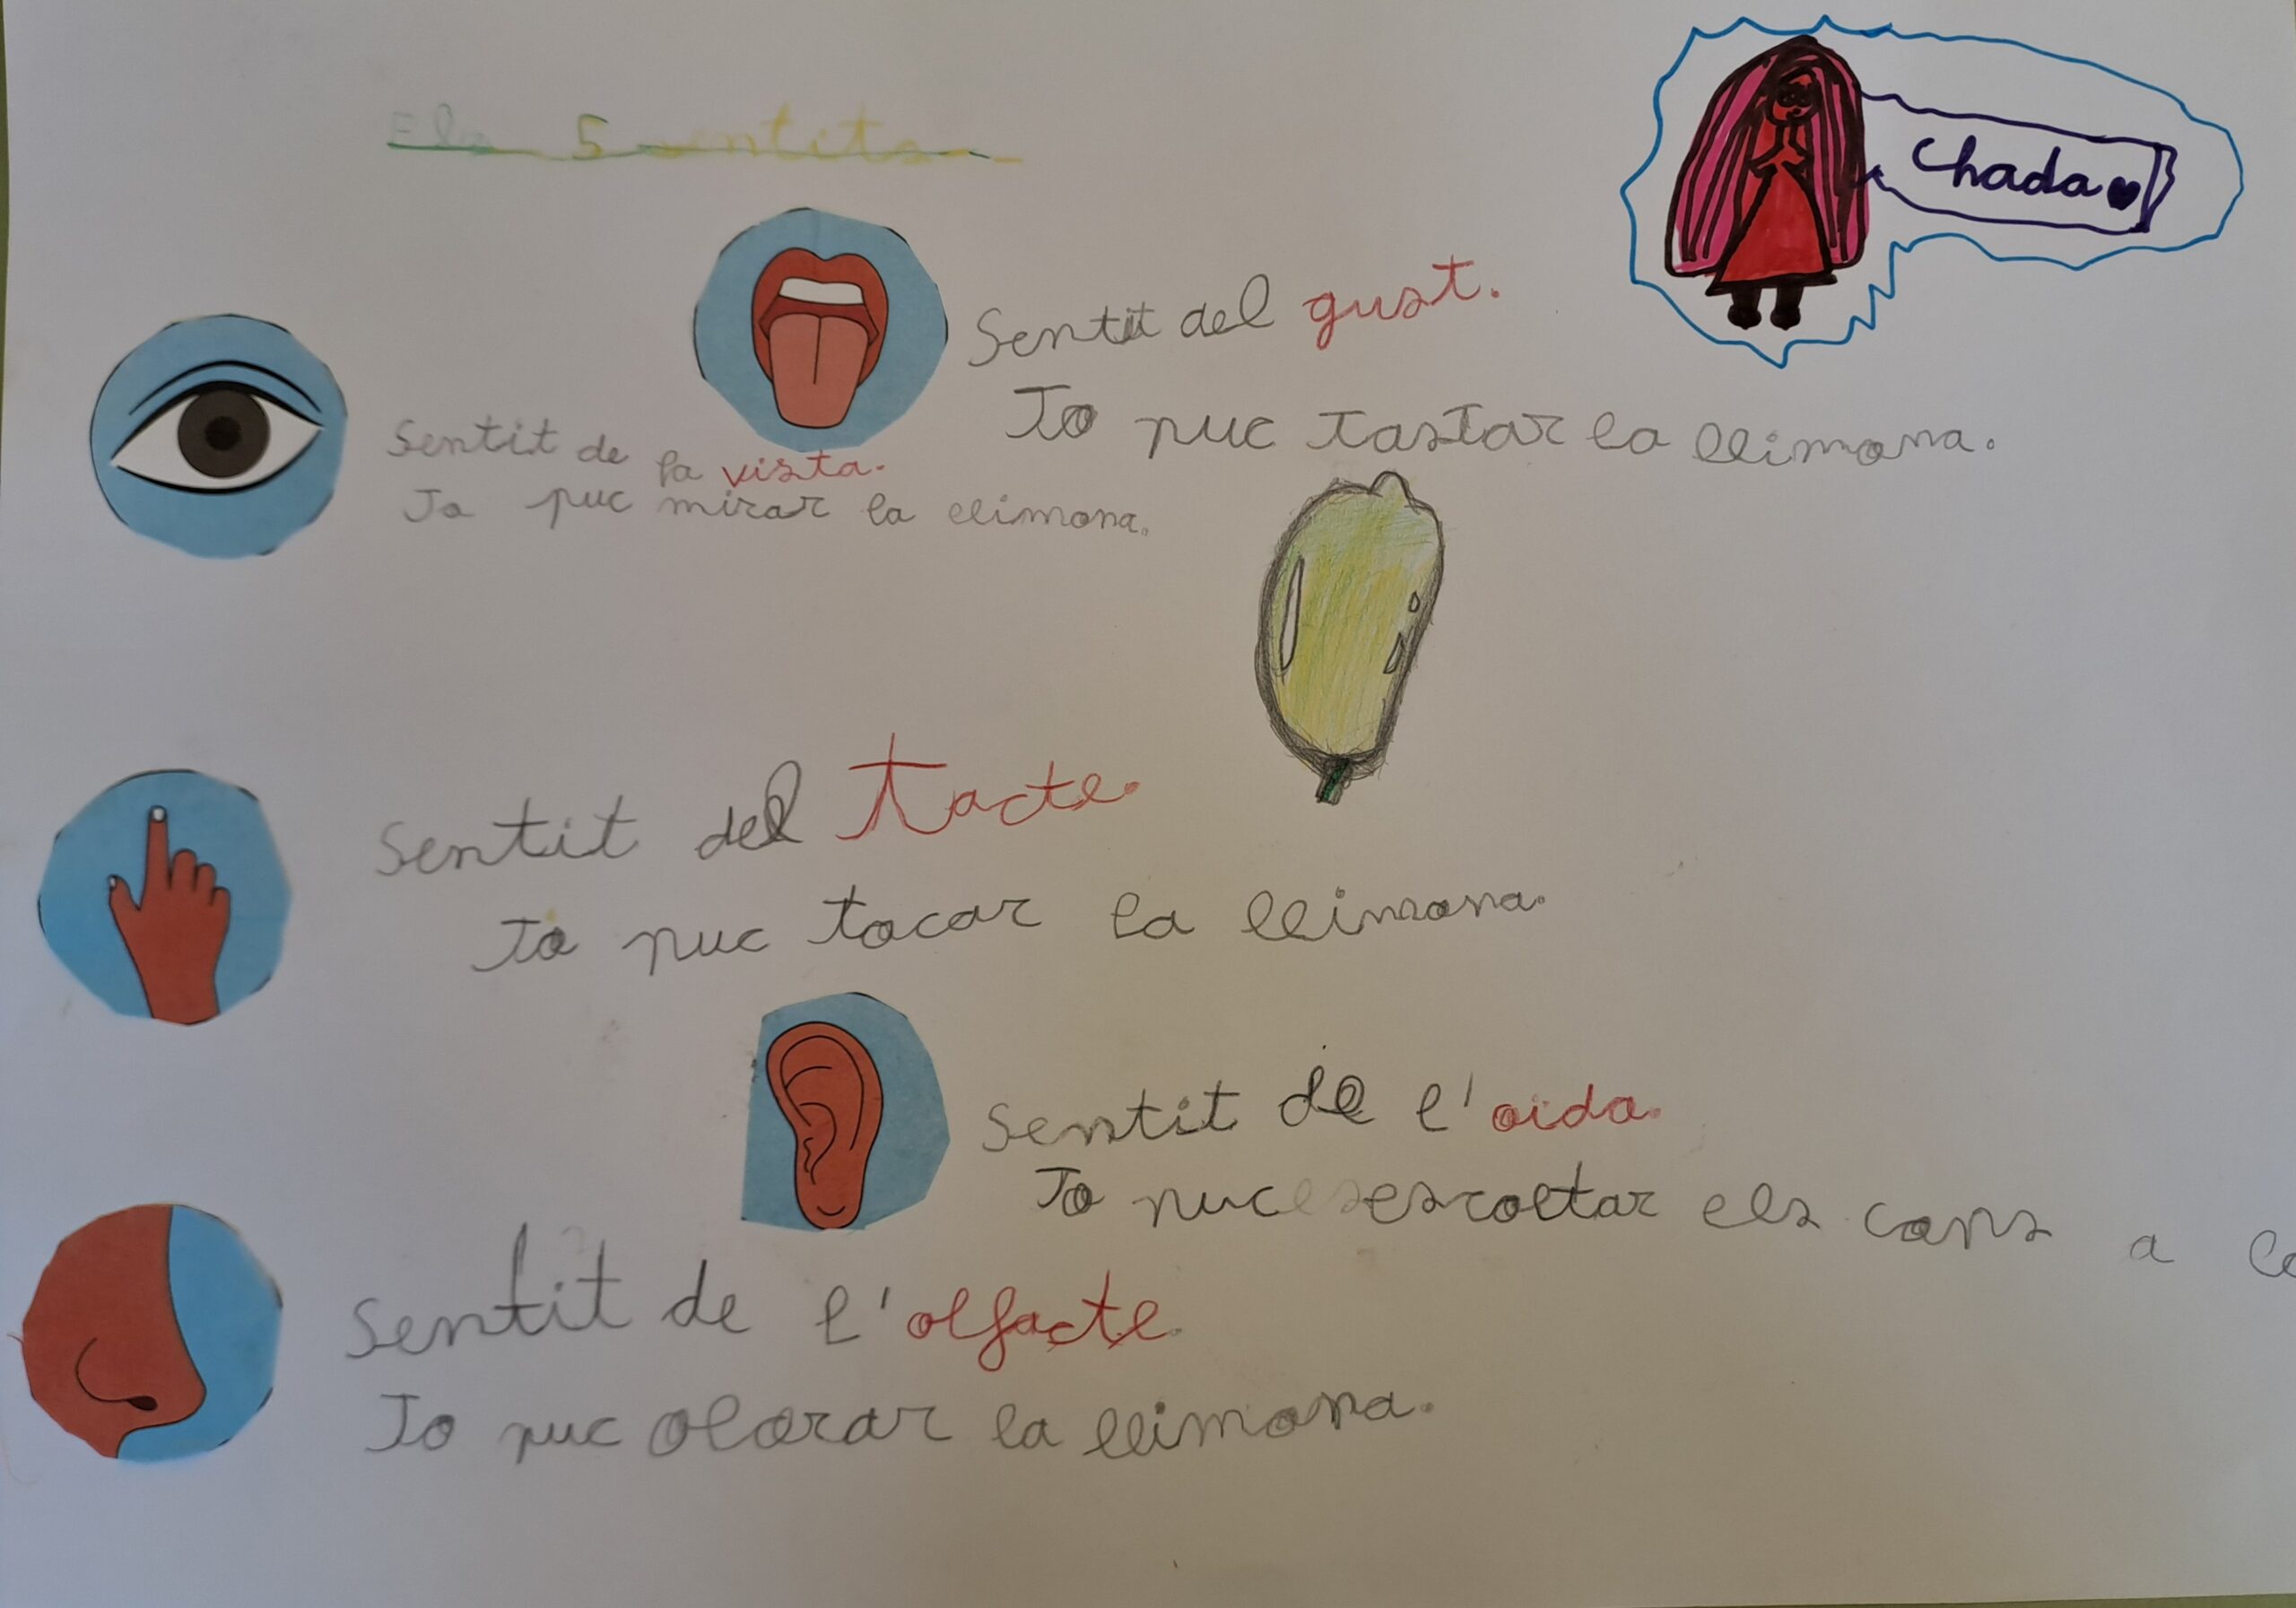 Els 5 sentits
Chada
Sentit del gust.
Jo puc tastar la llimona.
Sentit de la vista.
Jo puc mirar la llimona.
Sentit del tacte.
Jo puc tocar la llimona.
Sentit de l'oïda.
Jo puc escoltar els cans a
Sentit de l'olfacte.
Jo puc olorar la llimona.